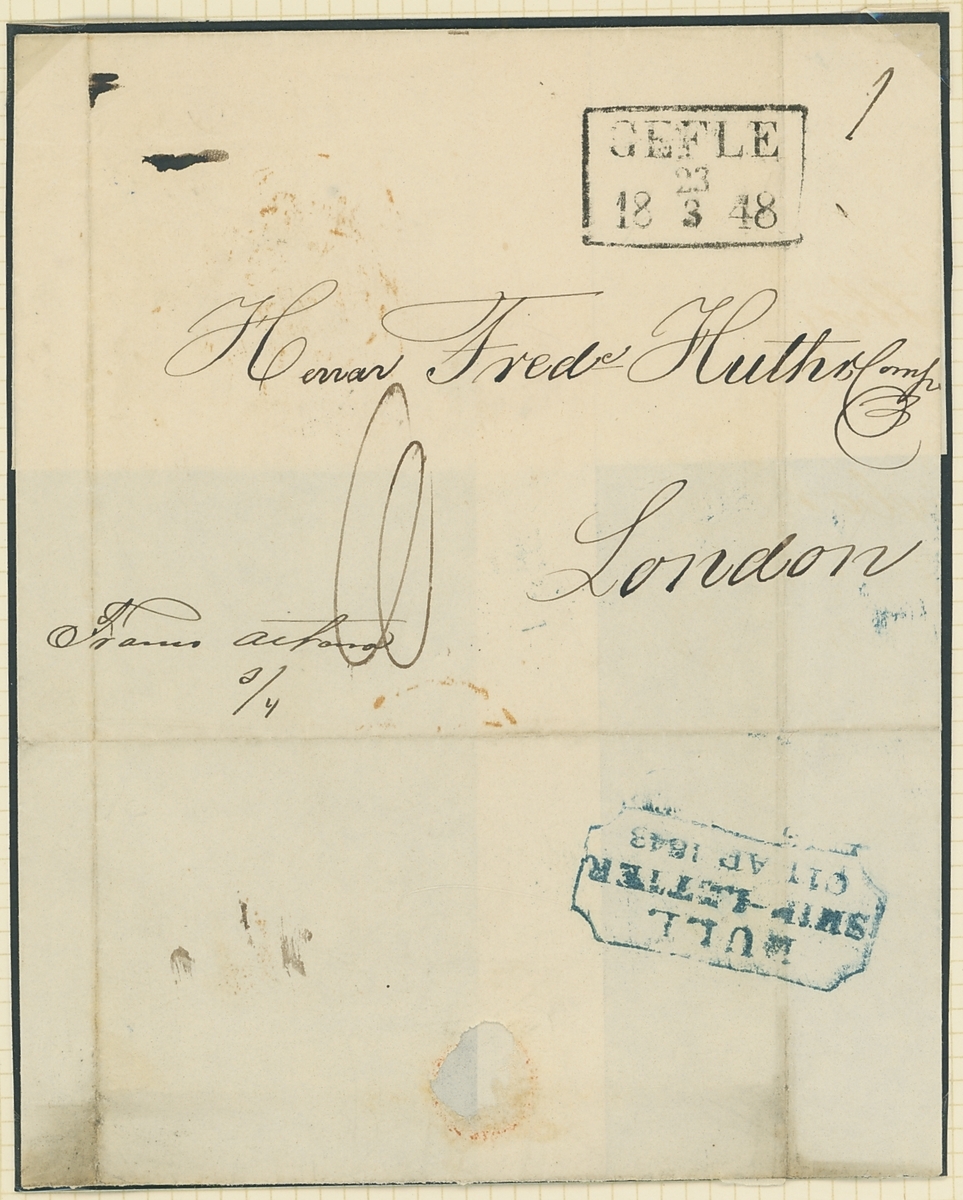 GEFLE
23
18 3 48
Herrar Fredc Huth & Comp
London
Franco
3/4
HULL
SHIP-LETTER
C11 AP 1848